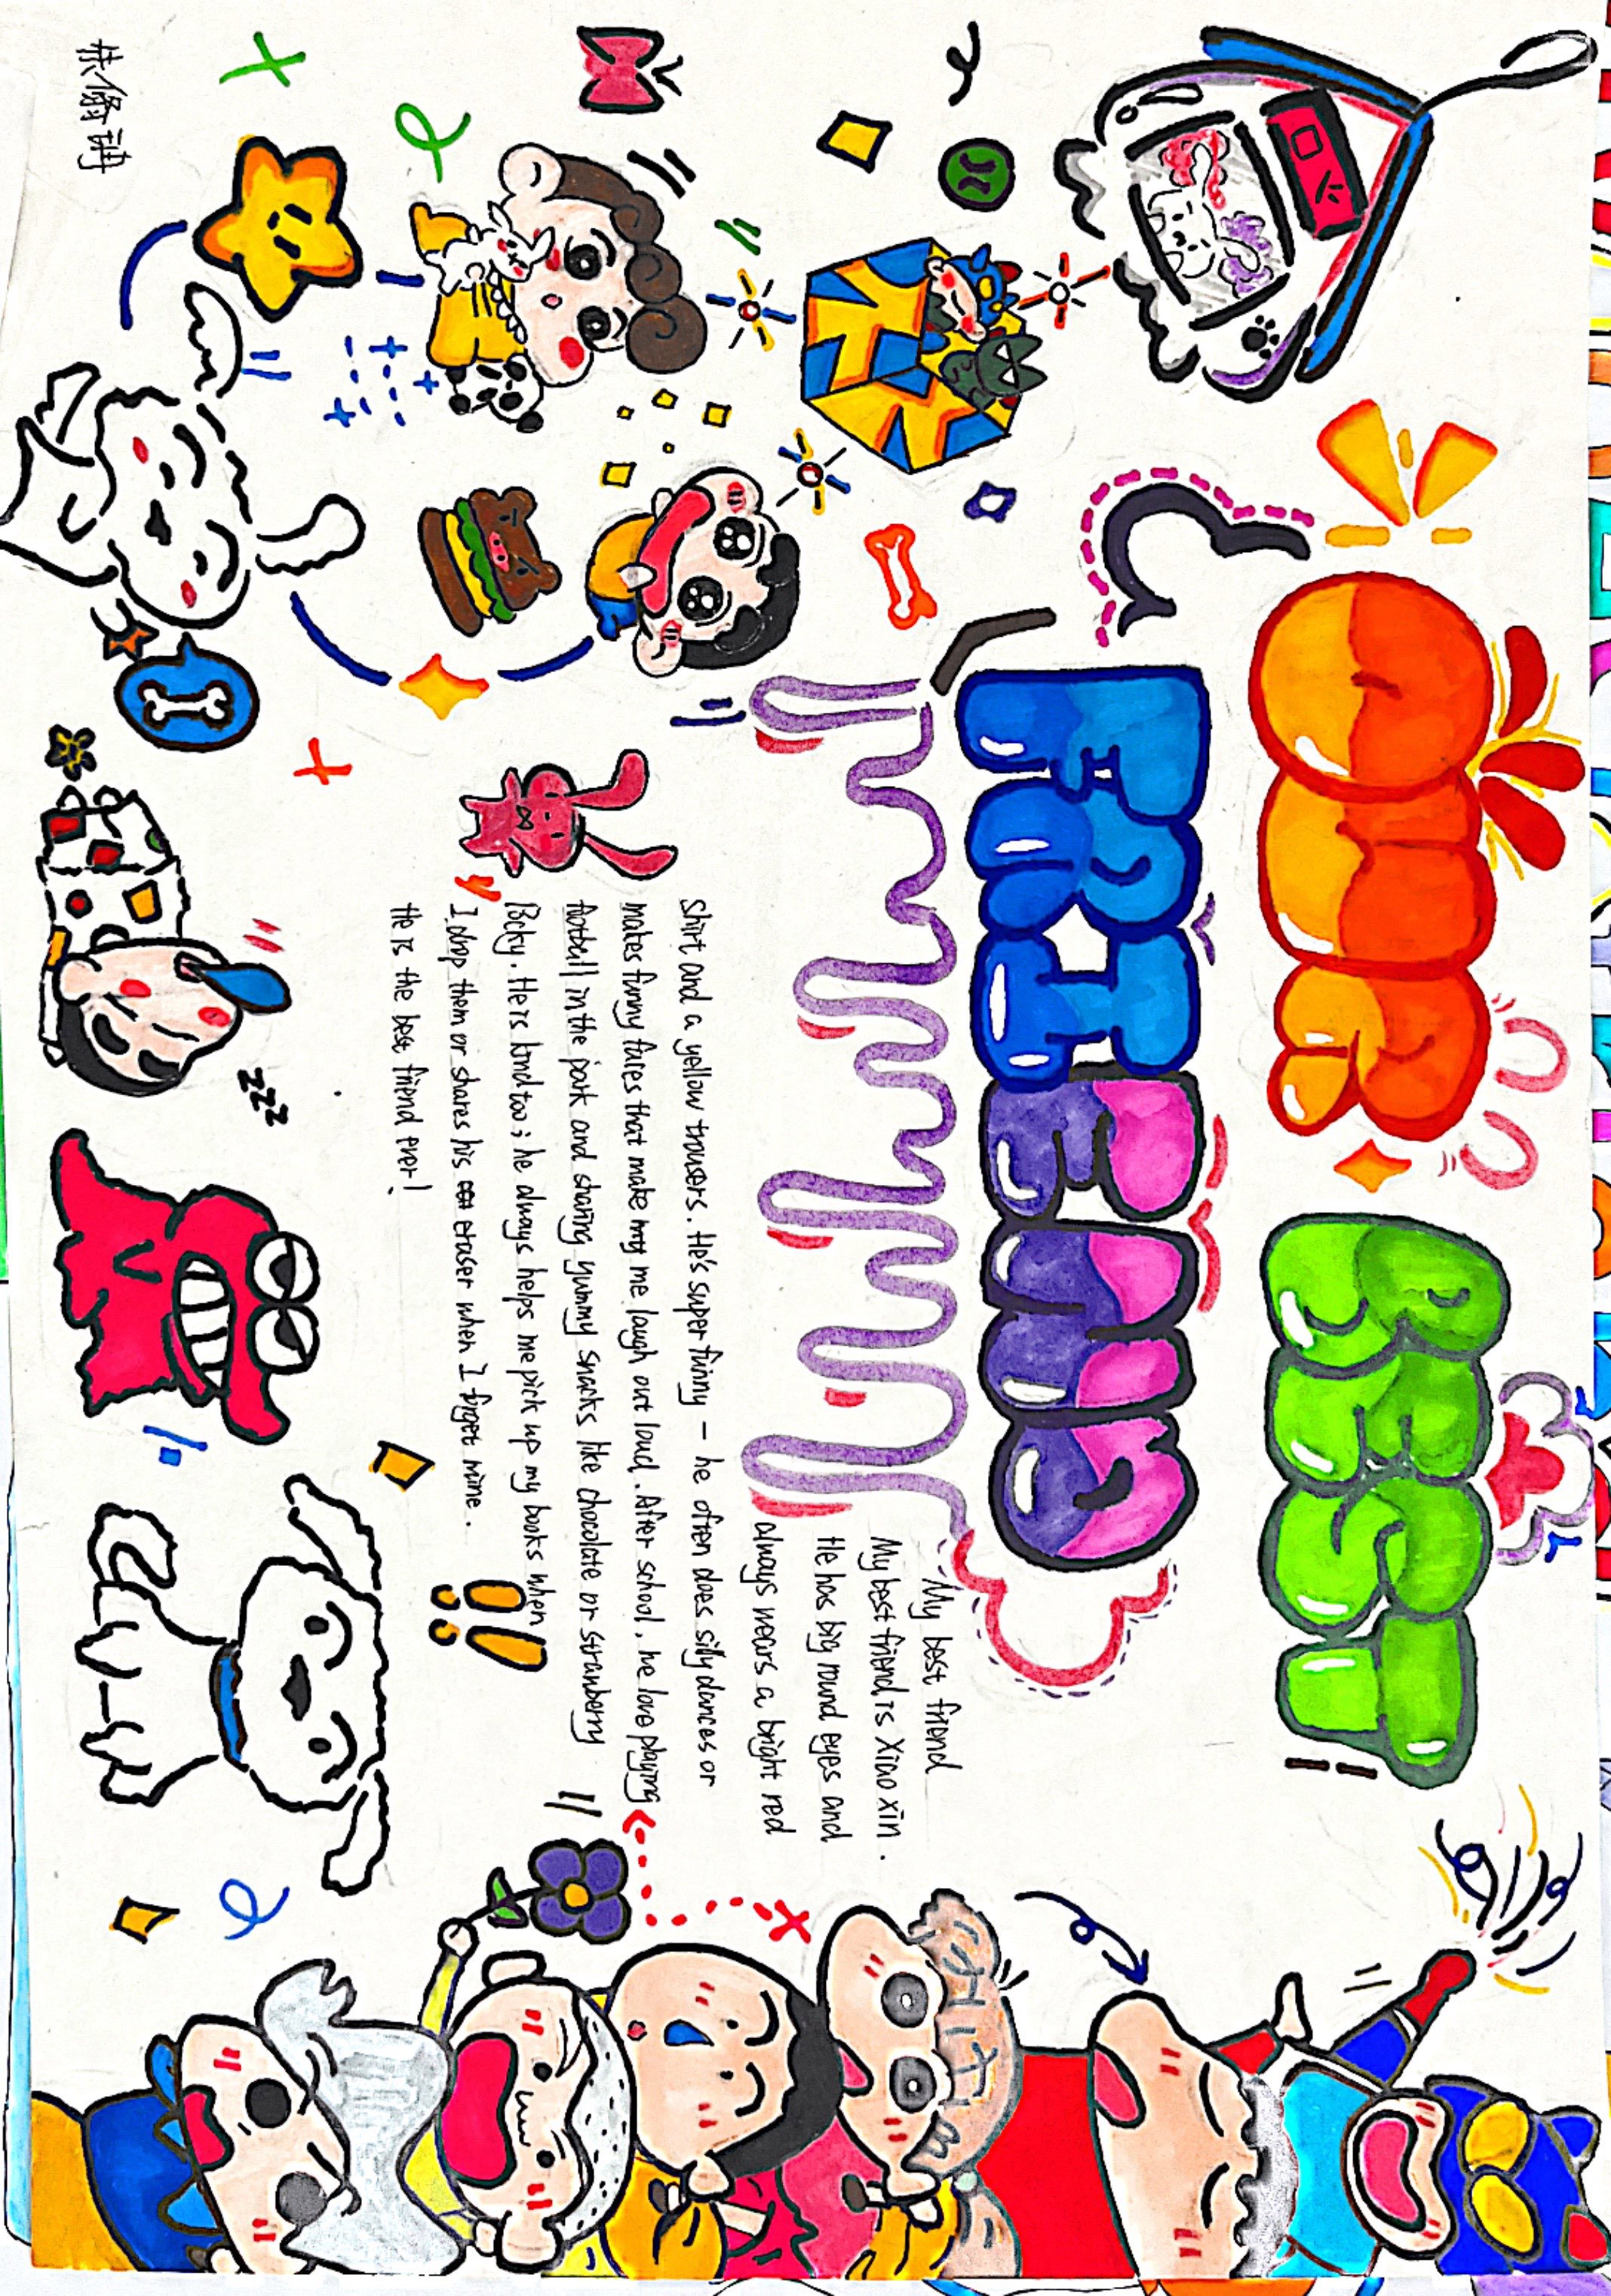 OUR BEST
FRIEND
My best friend
My best friend is Xiao xin.
He has big round eyes and
always wears a bright red
shirt and a yellow trousers. He's super funny — he often does silly dances or
makes funny faces that make my me laugh out loud. After school, he love playing
football in the park and sharing yummy snacks like chocolate or strawberry
Pocky. He is kind too; he always helps me pick up my books when
I drop them or shares his eraser when I forget mine.
He is the best friend ever!
zzz